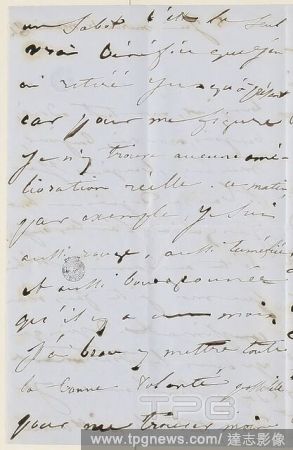 un sabot c'est le seul
vrai bénéfice que j'en
ai retiré jusqu'à présent
car pour ma figure
je n'y trouve aucune amé-
lioration réelle. ce matin
par exemple, je suis
aussi rouge, aussi tuméfiée
et aussi bourgeonnée
qu'il y a un mois
J'ai beau y mettre toute
la bonne volonté possible
pour me trouver moins
TPG
www.tpgnews.com / 達志影像